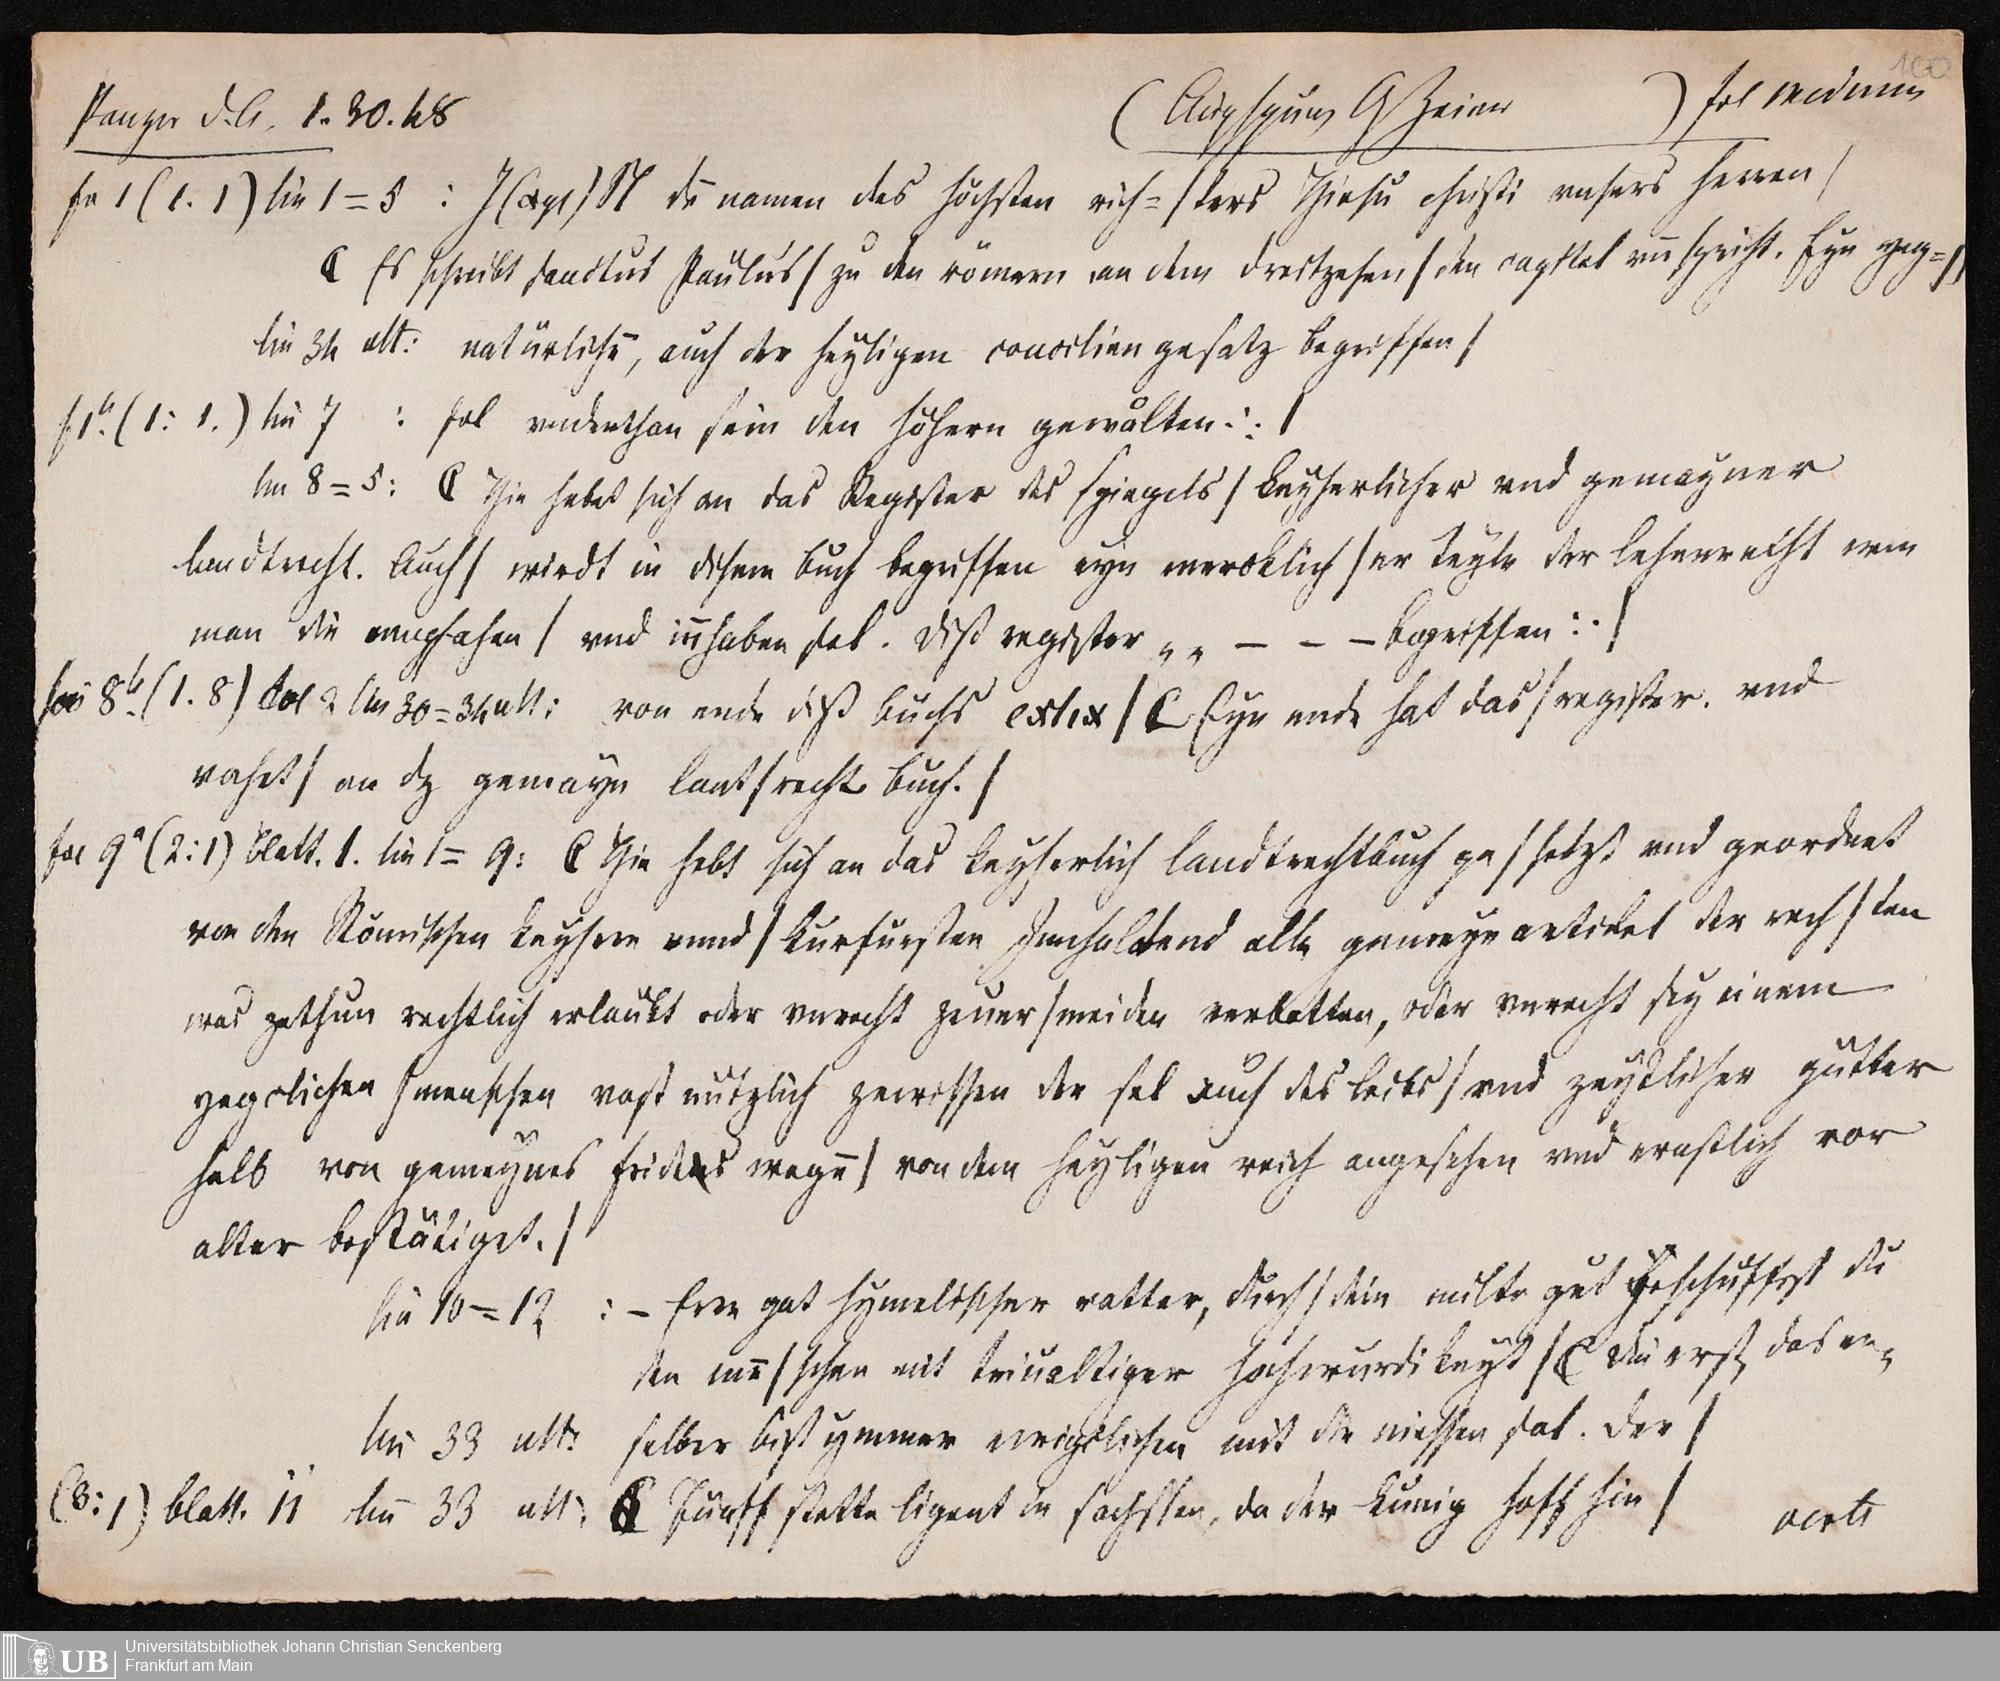 100
Panzer d. A. 1. 30. 48 (Augspurg G Zeiner) fol
fo 1 (1. 1) lin 1=5 : J(xyl)N dē namen des höchsten rich=/ters Ihiesu christi unsers herren /
C Es schreibt sanctus Paulus / zu den römern an dem dreitzehen / den capitel uñ spricht. Eyn yeg=//
lin 34 ult: natürlichē, auch der heyligen concilien gesatz begriffen /
f. 1b. (1: 1.) lin 7 : sol underthan sein den höhern gewålten.:. /
lin 8=5: C Hie hebet sich an das Register des spiegels / keyserlicher und gemayner
landtrecht. Auch / wirdt in disem buch begriffen eyn mercklich / er teyle der lehenrecht wie
man die empfahen / und iñhaben sol. Diß register „ „ — – – begriffen:. /
fo 8b. (1. 8) col 2 lin 30=34 ult: von ende diß buchs cxlix / C Eyn ende hat das / register. und
vahet / an dz gemayn lant / recht buch. /
fol 9a (2:1) blatt. 1. lin 1= 9: C Hie hebt sich an das keyserlich landtrechtbuch ge / setzt und geordnet
von den Römischen keysern unnd / kurfursten Jnnhaltend alle gemeyn artickel der rech / ten
was zethun rechtlich erlaubt oder unrecht zeuer / meiden verbotten, oder unrecht sey einem
yegclichen / menschen vast nützlich zewissen der sel auch des leibs / und zeytlicher gutter
halb von gemeynes frides wegē / von dem heyligen reich angesehen und ernstlich vor
alter bestätiget. /
lin 10=12 : – Erre got hymelischer vatter, durch / dein milte gut Geschuffest du
den mē / schen mit triualtiger hochwurdikeyt / C Die erst, das er
lin 33 ult: selber bist ymmer ewigclichen mit dir niessen sol. Der /
(3:1) blatt. 11 lin 33 ult: C Funff stette ligent in sachssen, da der kunig hoff hin /